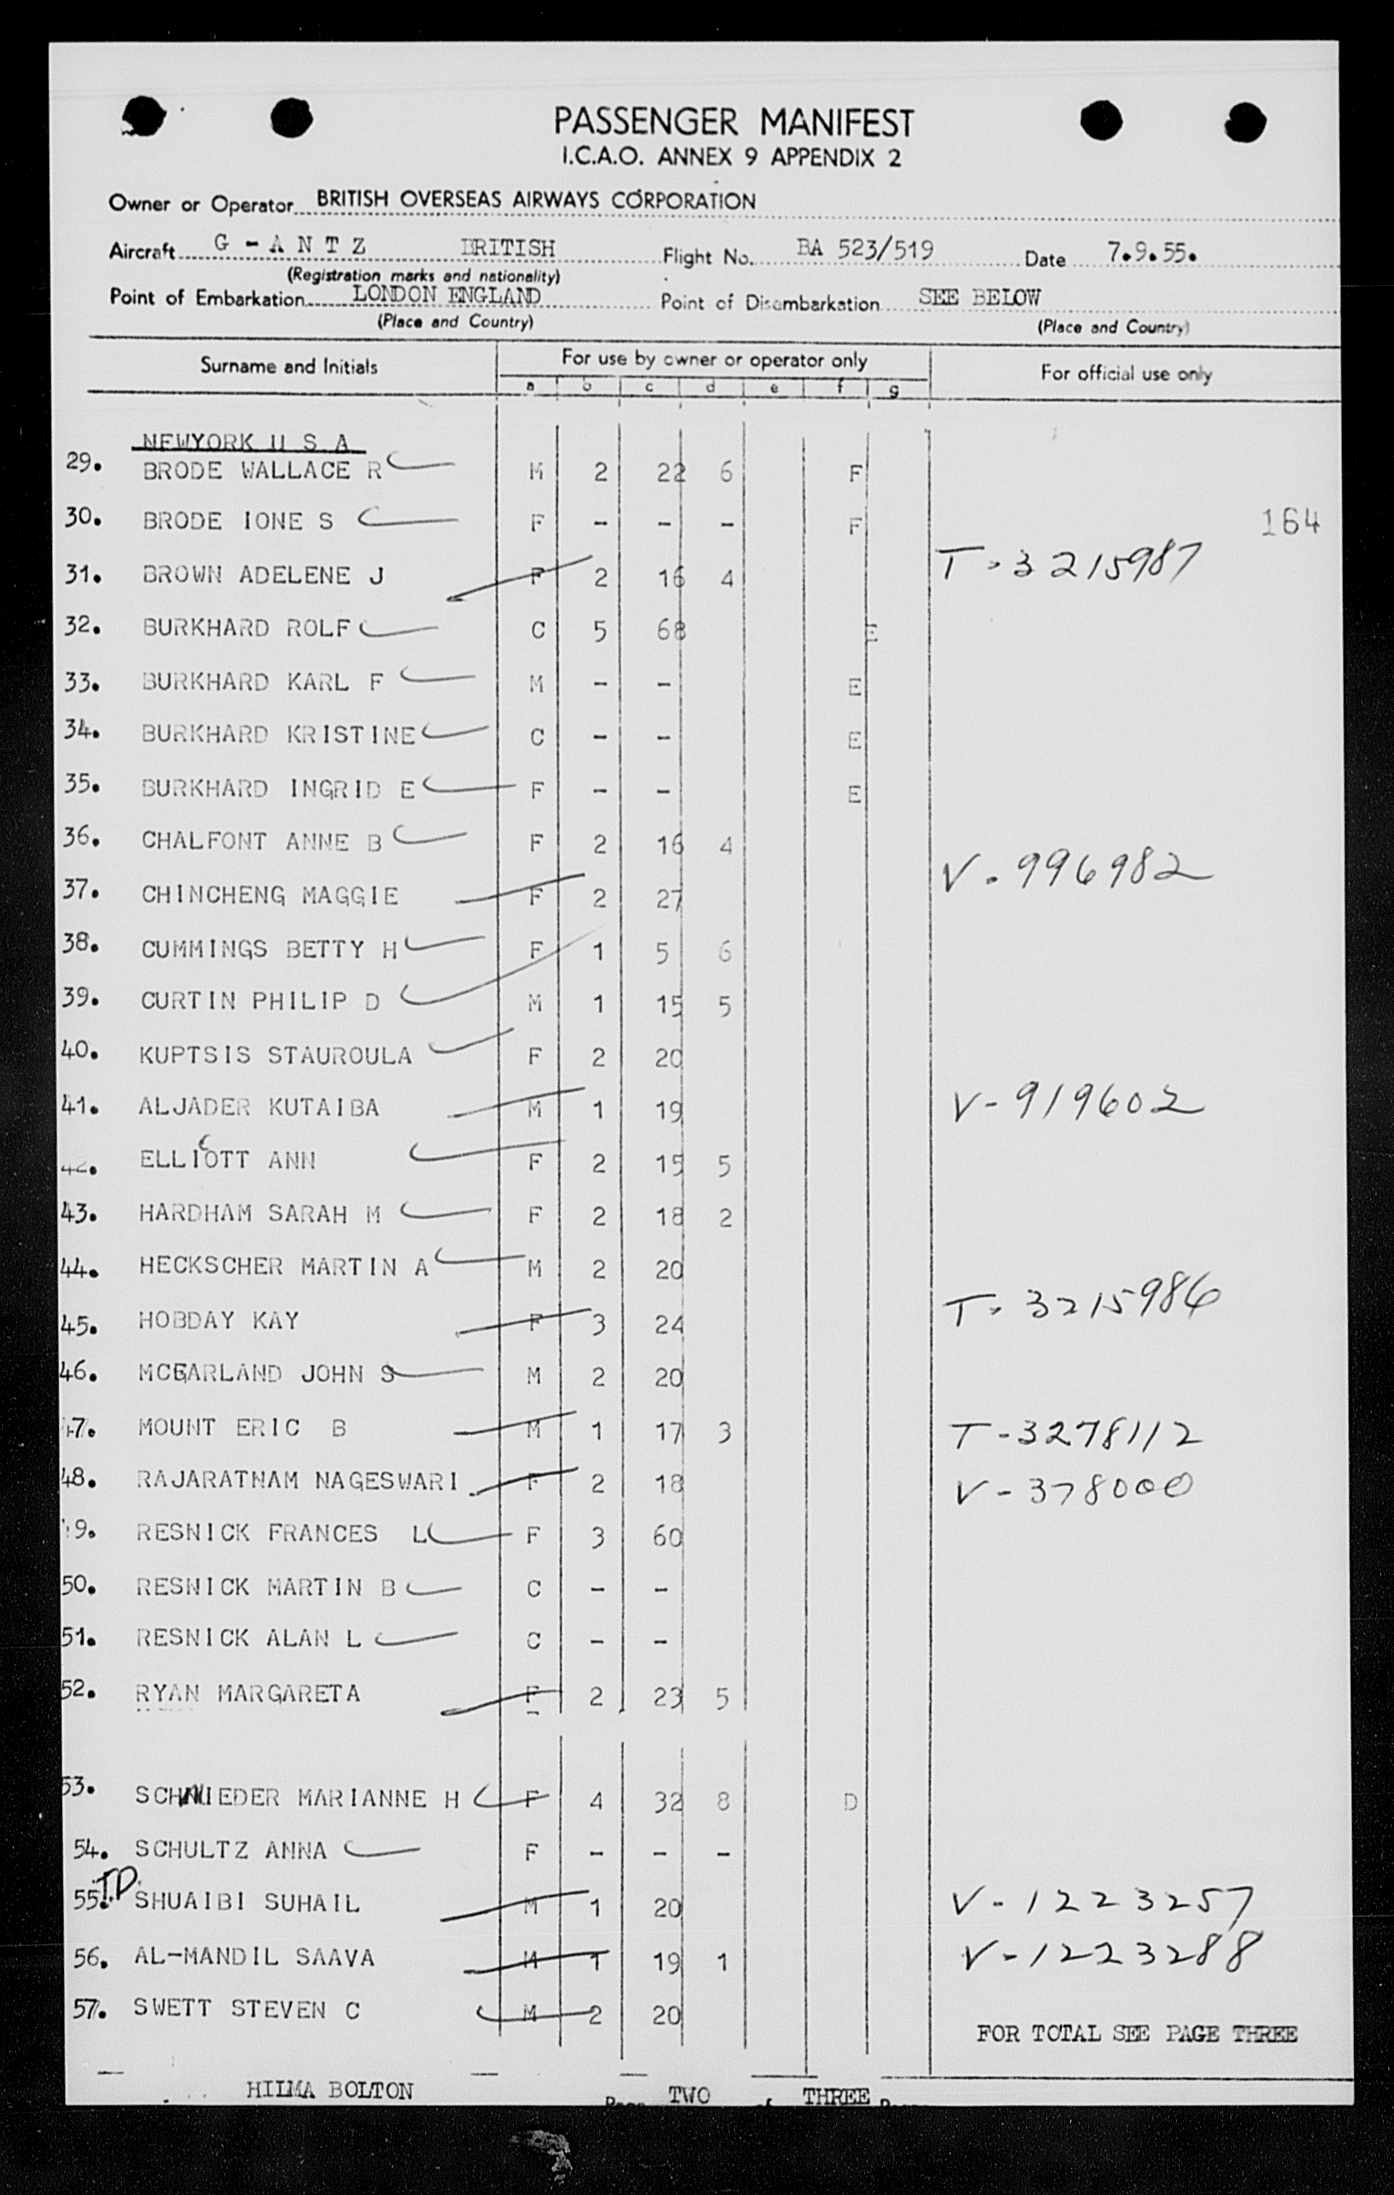 PASSENGER MANIFEST
I.C.A.O. ANNEX 9 APPENDIX 2
Owner or Operator BRITISH OVERSEAS AIRWAYS CORPORATION
Aircraft G - A N T Z BRITISH Flight No. BA 523/519 Date 7.9.55.
(Registration marks and nationality)
Point of Embarkation LONDON ENGLAND Point of Disembarkation SEE BELOW
(Place and Country) (Place and Country)
Surname and Initials For use by owner or operator only For official use only
a b c d e f g
NEWYORK U S A
29. BRODE WALLACE R M 2 22 6 F
30. BRODE IONE S F - - - F 164
31. BROWN ADELENE J F 2 16 4 T-3215987
32. BURKHARD ROLF C 5 68 E
33. BURKHARD KARL F M - - E
34. BURKHARD KRISTINE C - - E
35. BURKHARD INGRID E F - - E
36. CHALFONT ANNE B F 2 16 4
37. CHINCHENG MAGGIE F 2 27 V-996982
38. CUMMINGS BETTY H F 1 5 6
39. CURTIN PHILIP D M 1 15 5
40. KUPTSIS STAUROULA F 2 20
41. ALJADER KUTAIBA M 1 19 V-919602
42. ELLIOTT ANN F 2 15 5
43. HARDHAM SARAH M F 2 18 2
44. HECKSCHER MARTIN A M 2 20
45. HOBDAY KAY F 3 24 T-3215986
46. JOHN S M 2 20
47. MOUNT ERIC B M 1 17 3 T-3278112
48. RAJARATNAM NAGESWARI F 2 18 V-378000
49. RESNICK FRANCES L F 3 60
50. RESNICK MARTIN B C - -
51. RESNICK ALAN L C - -
52. RYAN MARGARETA F 2 23 5
53. MARIANNE H F 4 32 8 D
54. SCHULTZ ANNA F - - -
55. TD SHUAIBI SUHAIL M 1 20 V-1223257
56. AL-MANDIL SAAVA M 1 19 1 V-1223288
57. SWETT STEVEN C M 2 20
FOR TOTAL SEE PAGE THREE
HILMA BOLTON Page TWO of THREE